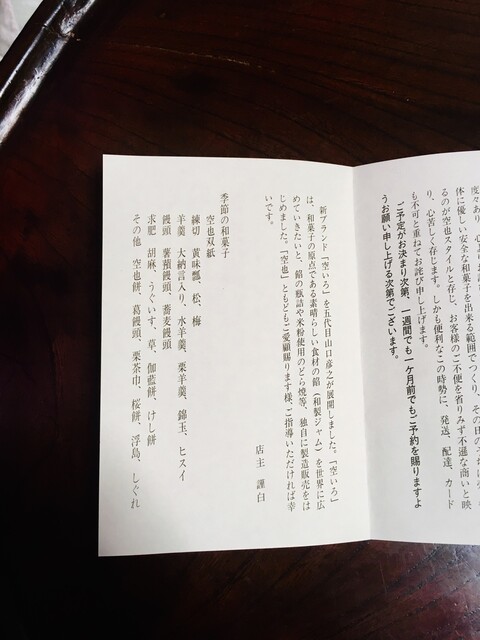 体に優しい安全な和菓子を出来る範囲でつくり、その
るのが空也スタイルと存じ、お客様のご不便を省りみず不遜な商いと映
り、心苦しく存じます。しかも便利なこの時勢に、発送、配達、カード
も不可と重ねてお詫び申し上げます。
ご予定がお決まり次第、一週間でも一ケ月前でもご予約を賜りますよ
うお願い申し上げる次第でございます。
新ブランド「空いろ」を五代目山口彦之が展開しました。「空いろ」
は、和菓子の原点である素晴らしい食材の餡(和製ジャム)を世界に広
めていきたいと、餡の瓶詰や米粉使用のどら焼等、独自に製造販売をは
じめました。「空也」ともどもご愛顧賜ります様、ご指導いただければ幸
いです。
店主 謹白
季節の和菓子
空也双紙
練切 黄味瓢、松、梅
羊羹 大納言入り、水羊羹、栗羊羹、錦玉、ヒスイ
饅頭 薯蕷饅頭、蕎麦饅頭
求肥 胡麻、うぐいす、草、伽藍餅、けし餅
その他 空也餅、葛饅頭、栗茶巾、桜餅、浮島、しぐれ